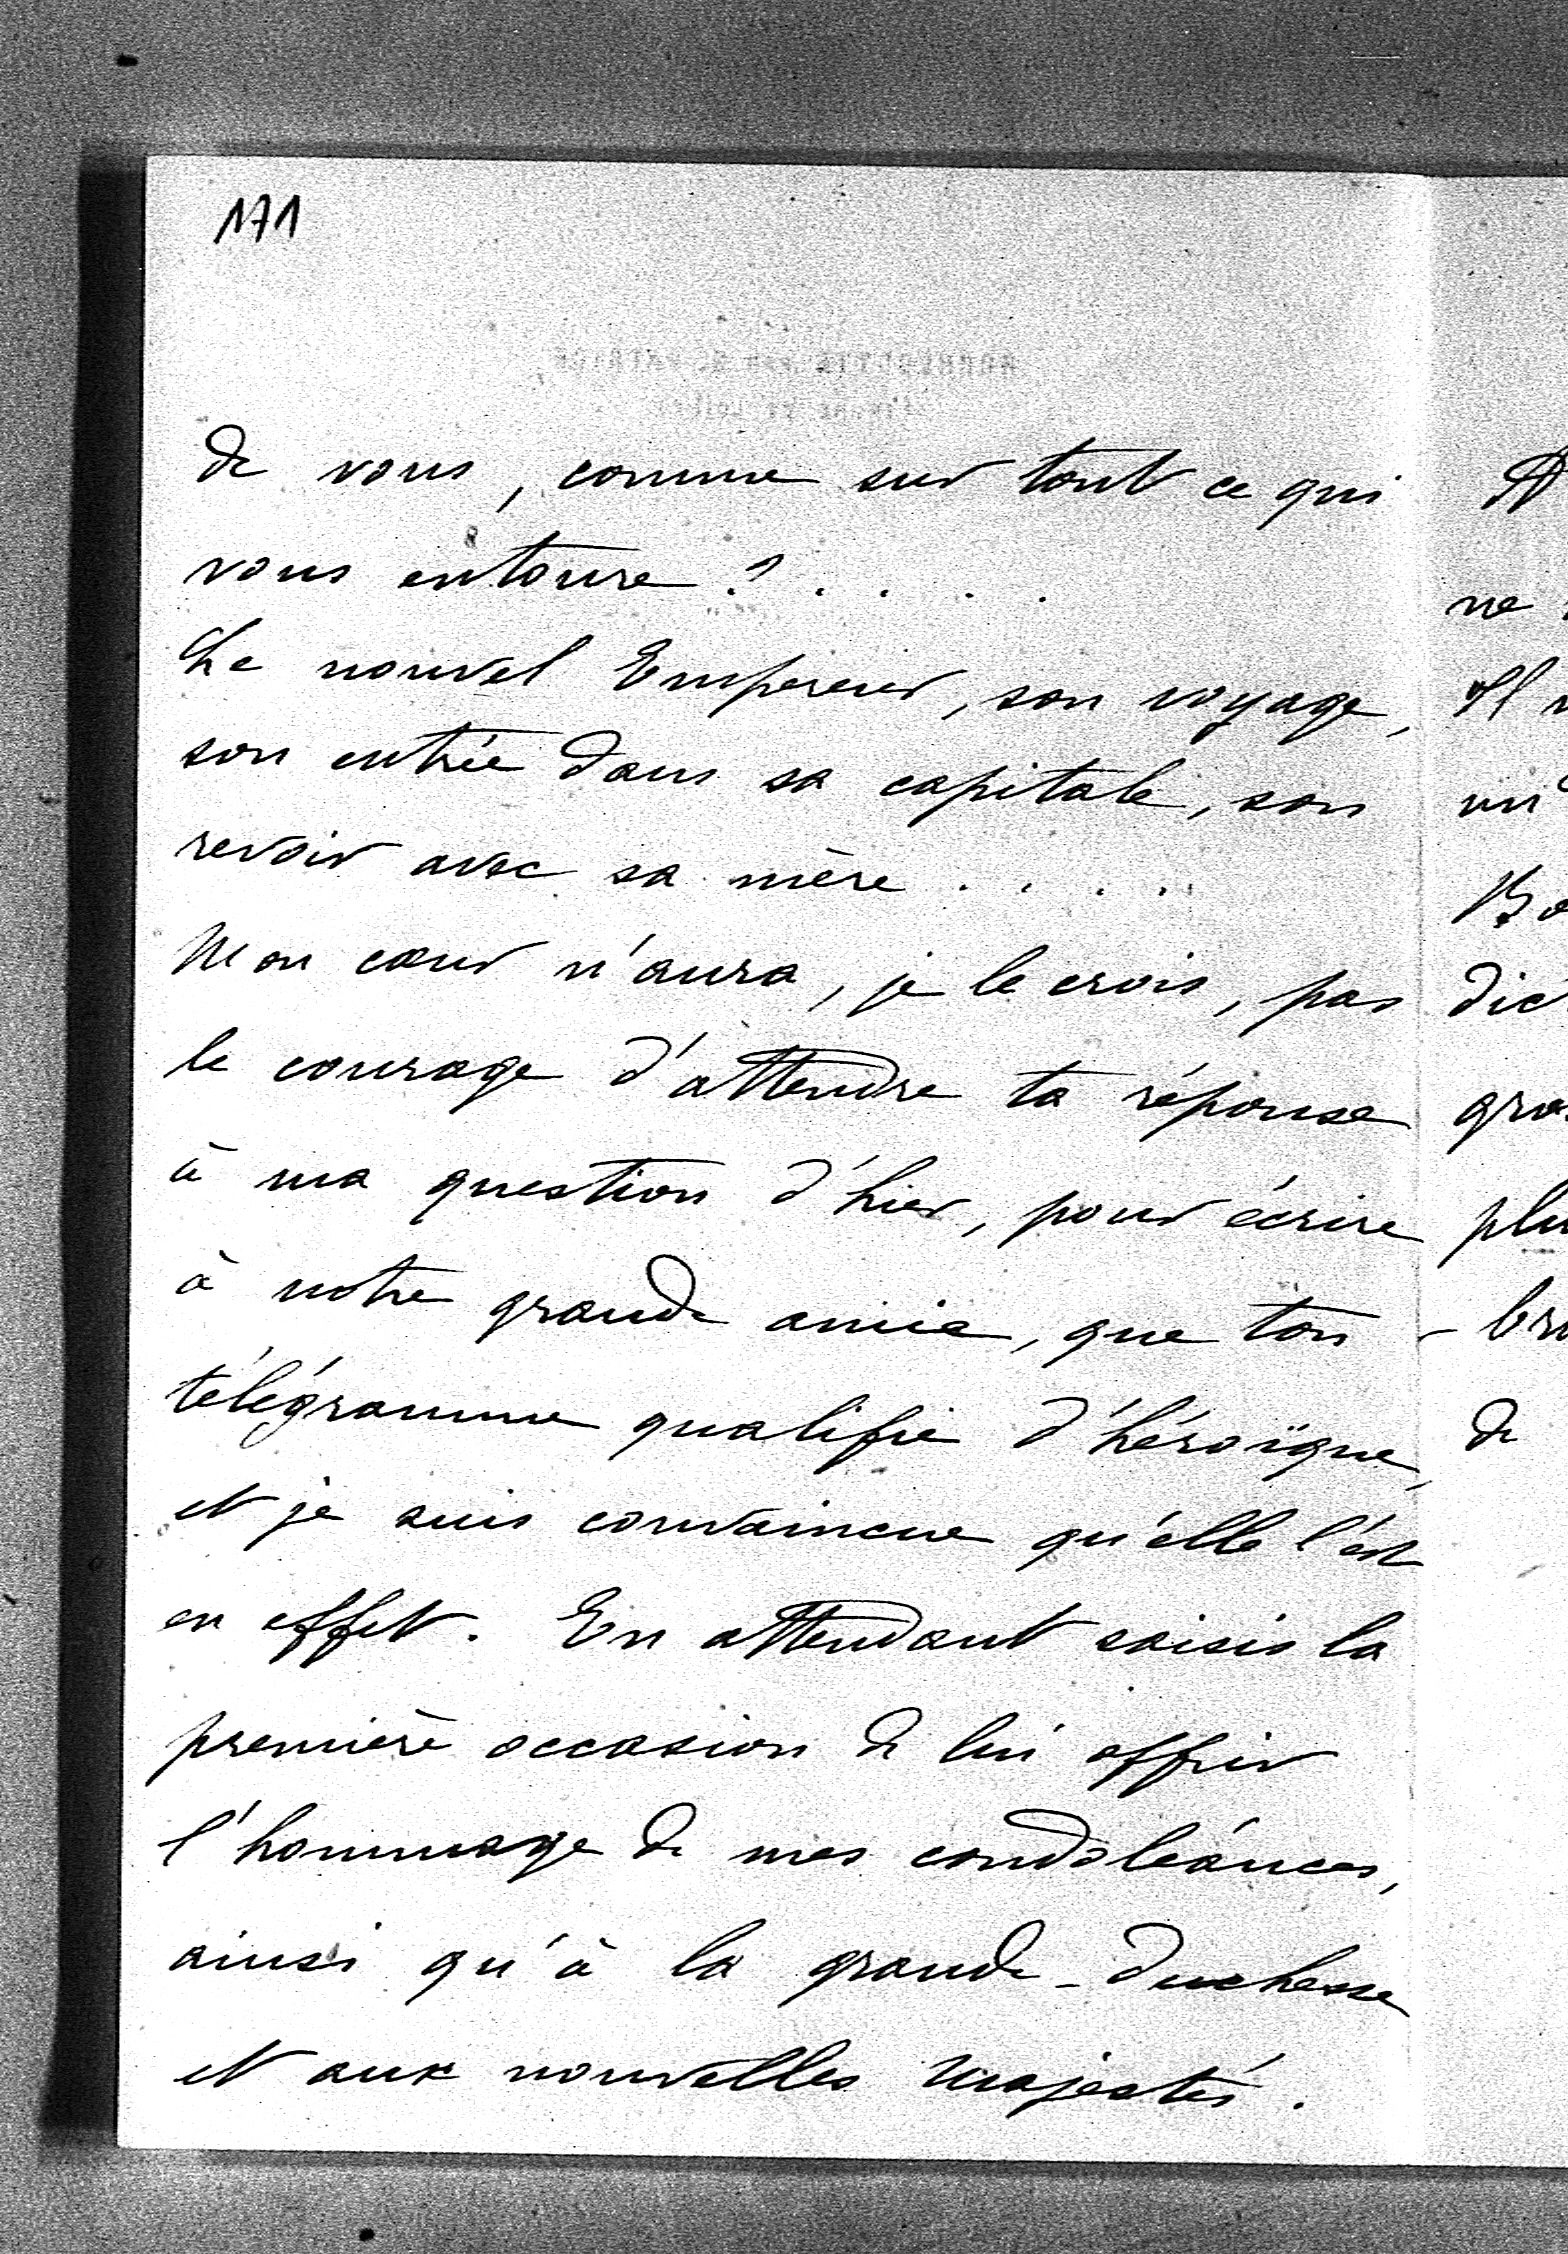 171
de vous, comme sur tout ce qui
vous entoure ? . . . .
Le nouvel Empereur, son voyage,
son entrée dans sa capitale, son
revoir avec sa mère . . . .
Mon cœur n'aura, je le crois, pas
le courage d'attendre ta réponse
à ma question d'hier, pour écrire
à notre grande amie, que ton
télégramme qualifie d'héroïque,
et je suis convaincue qu'elle l'est
en effet. En attendant saisis la
première occasion de lui offrir
l'hommage de mes condoléances,
ainsi qu'à la grande-duchesse
et aux nouvelles Majestés.
ne
Il
de